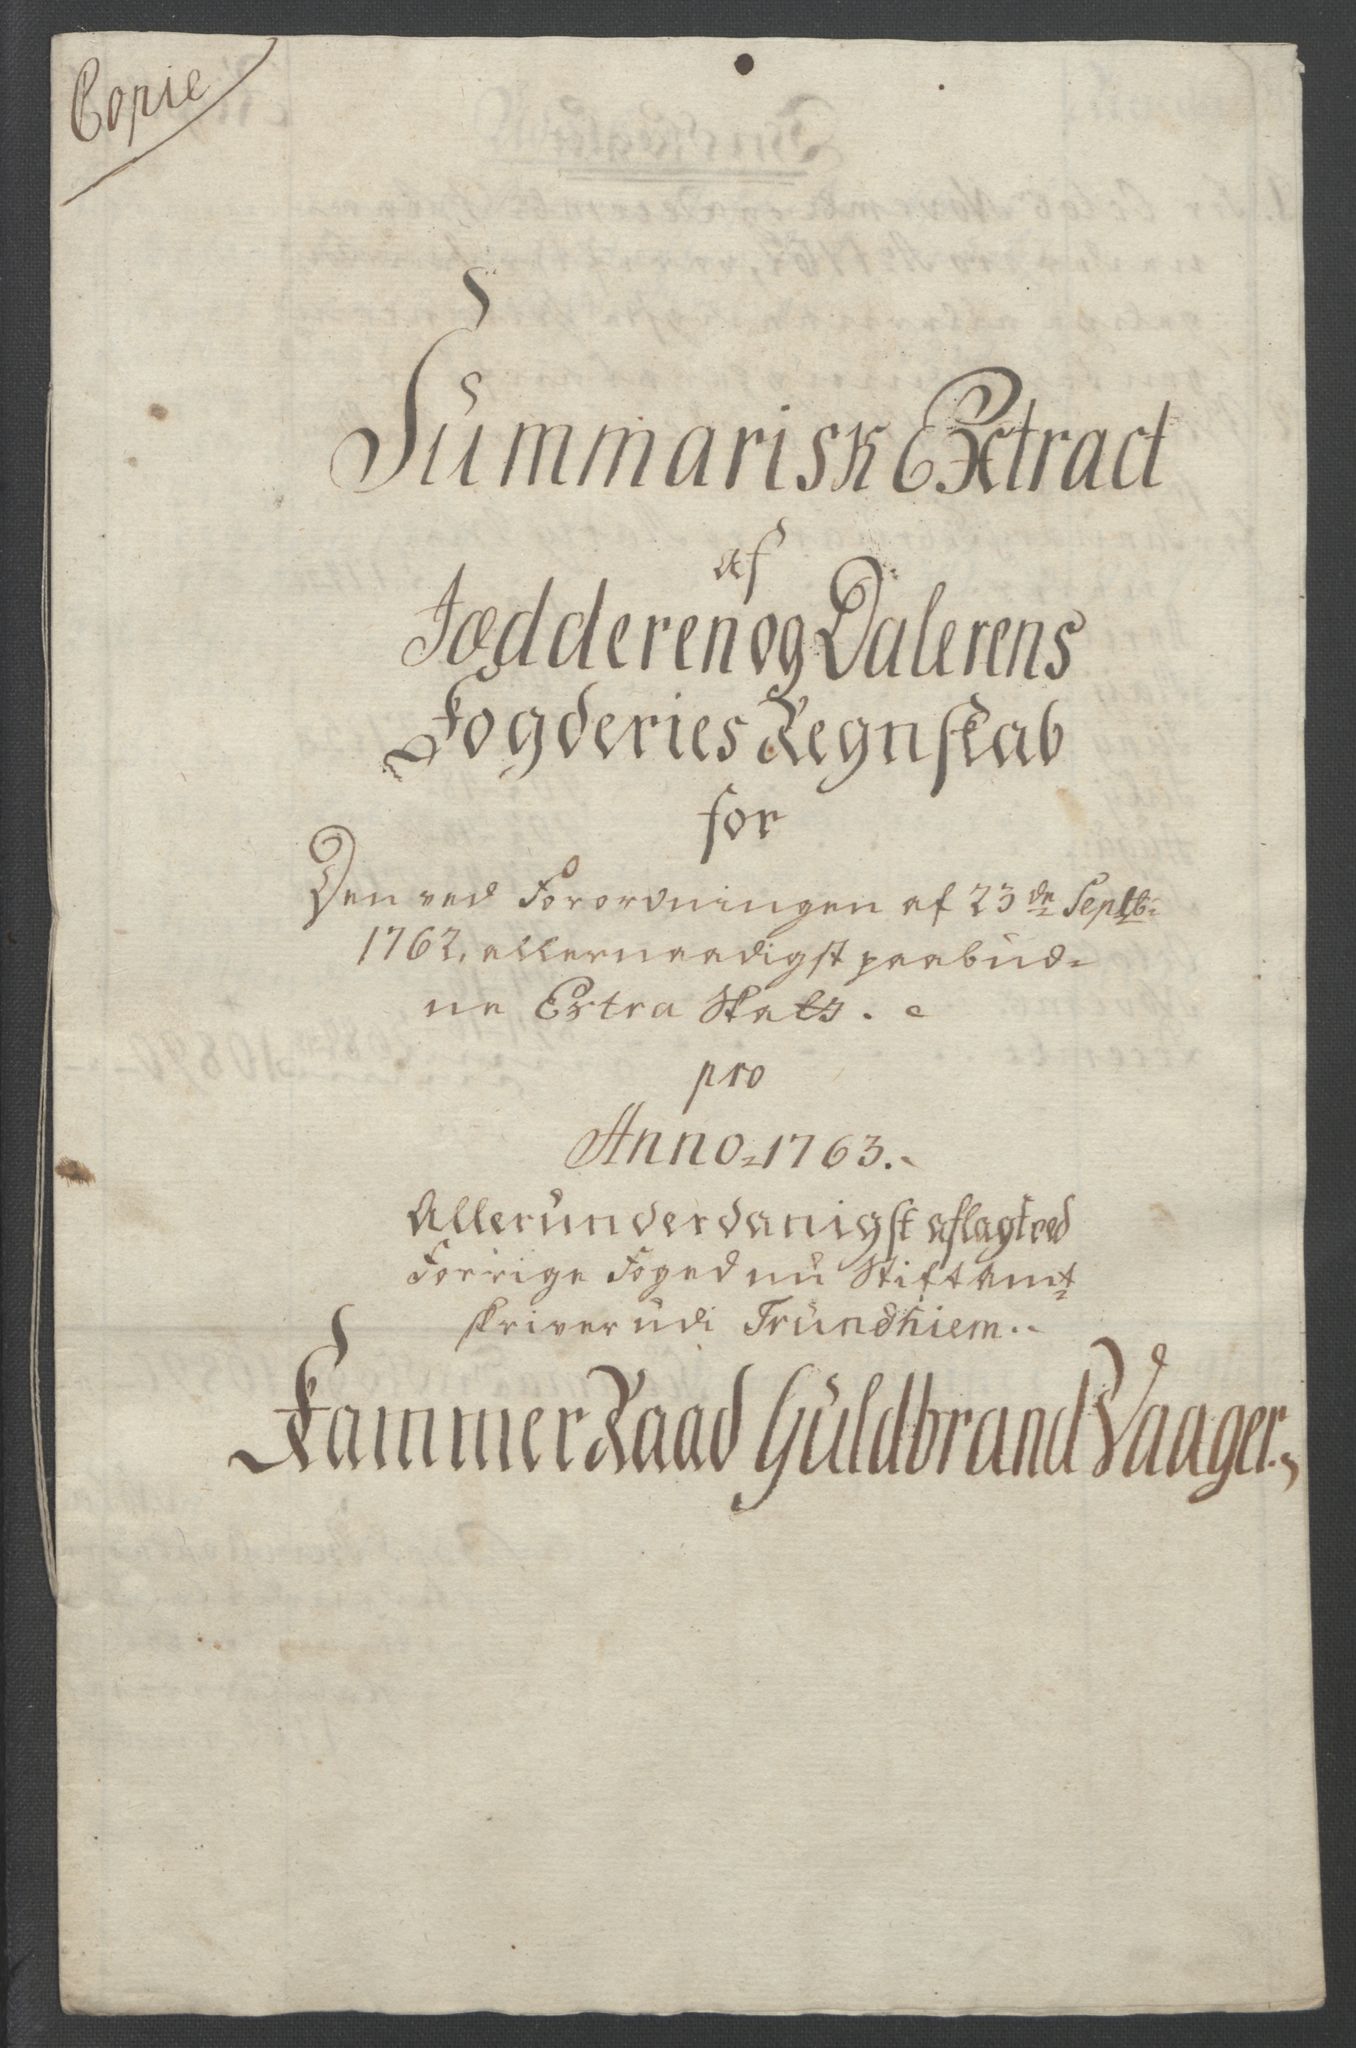 Copie
Summarisk Extract
af
Jædderen og Dalerens
Fogderies Regnskab
for
Den ved Forordningen af 23de Septb:
1762, allernaadigst paabud-
ne Extra Skatt.
pro
Anno 1763.
Allerunderdanigst aflagt ved
Forrige Foged nu Stiftamt-
skriver udi Trundhiem.
Kammer Raad Guldbrand Vaager.